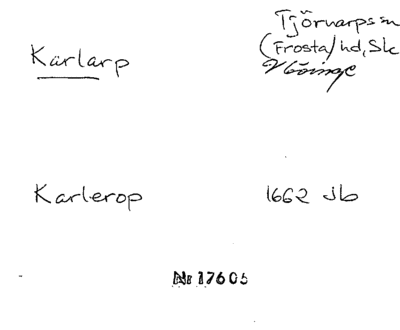 Karlarp
Tjörnarps sn
(Frosta) hd, Sk
Karlerop 1662 Jb
Nr 17605